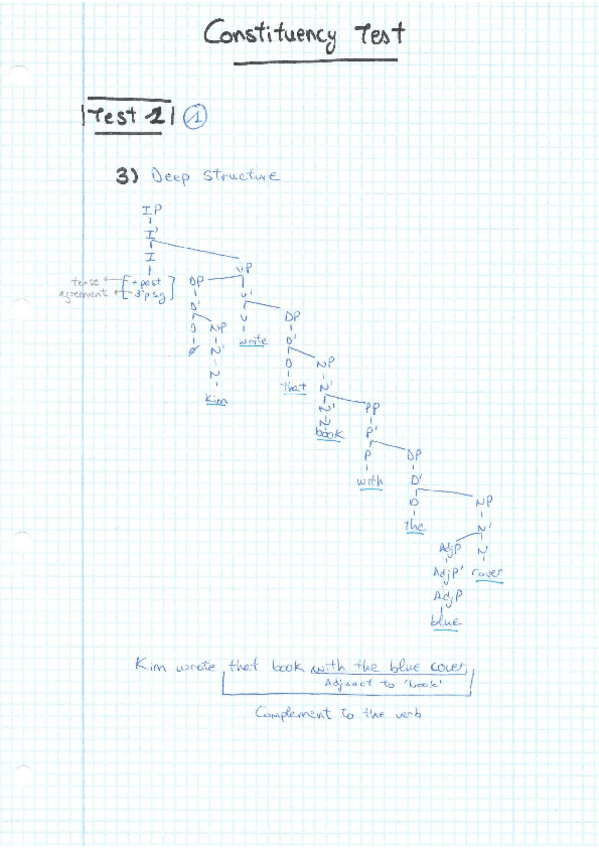 Constituency Test
Test 1 ①
3) Deep structure
IP
I'
I
VP
tense + past DP V'
agreement 3ʳp sg D' V DP
D NP write D'
ø N' D NP
N that N'
Kim N' PP
N P'
book P DP
with D'
D NP
the N'
AdjP N'
AdjP' cover
AdjP
blue
Kim wrote that book with the blue cover
Adjunct to 'book'
Complement to the verb